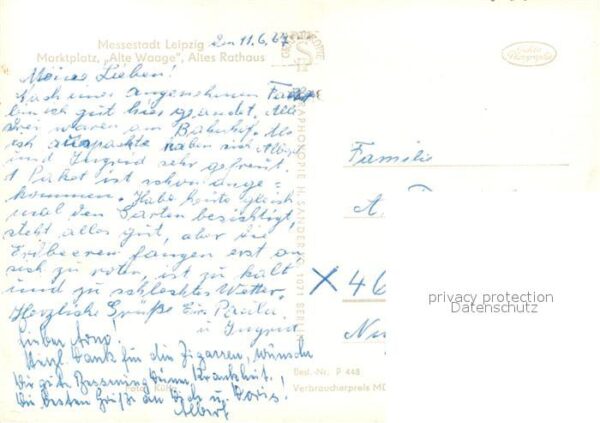 Messestadt Leipzig den 11.6.67
Marktplatz, "Alte Waage", Altes Rathaus
Meine Lieben!
Nach einer angenehmen
bin ich gut hier gelandet. Alle
drei waren am Bahnhof.
ich haben sich Albert
und Ingrid sehr gefreut.
1 Paket ist schon ange=
kommen. Habe heute gleich
mal den Garten besichtigt,
steht alles gut, aber die
Erdbeeren fangen erst an
sich zu röten, ist zu kalt
und zu schlechtes Wetter.
Herzliche Grüße
u Ingrid
Lieber Arno!
Herzl. Dank für die Zigarren, wünsche
Dir gute Besserung Deiner Krankheit!
Die besten Grüße an Dich u. Doris!
Albert
Foto:
H. SANDER KG, 1071 BERLIN
Echte Photographie
Familie
A
X 46
Nu
privacy protection
Datenschutz
Best.-Nr. P 448
Verbraucherpreis MD